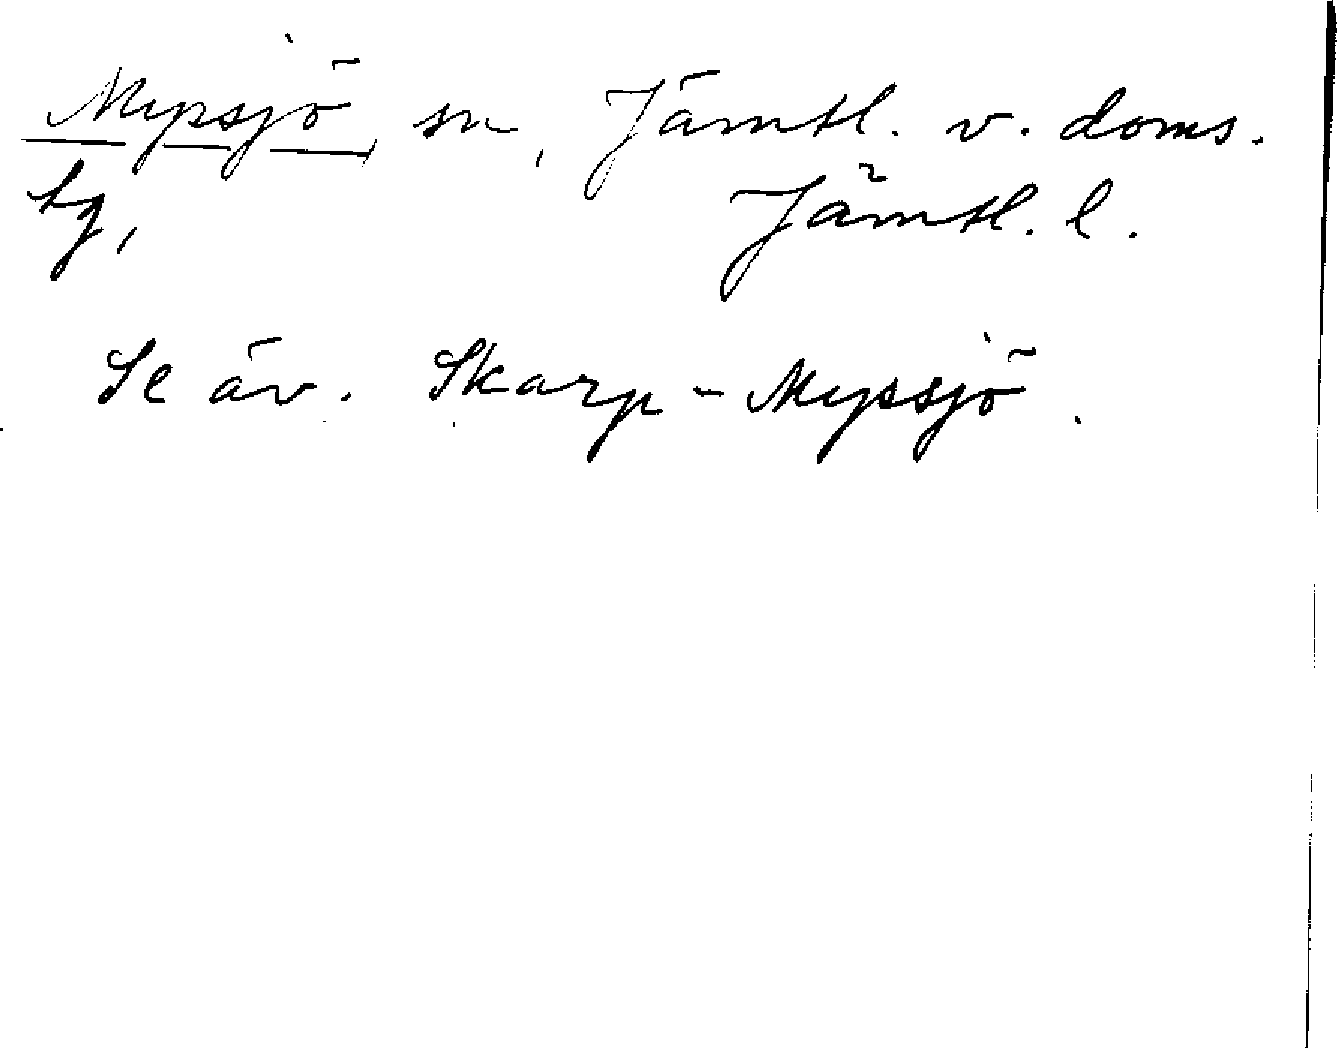 Mypsjö sn, Jämtl. v. doms.
tg, Jämtl. l.
Se äv. Skarp-Myssjö.